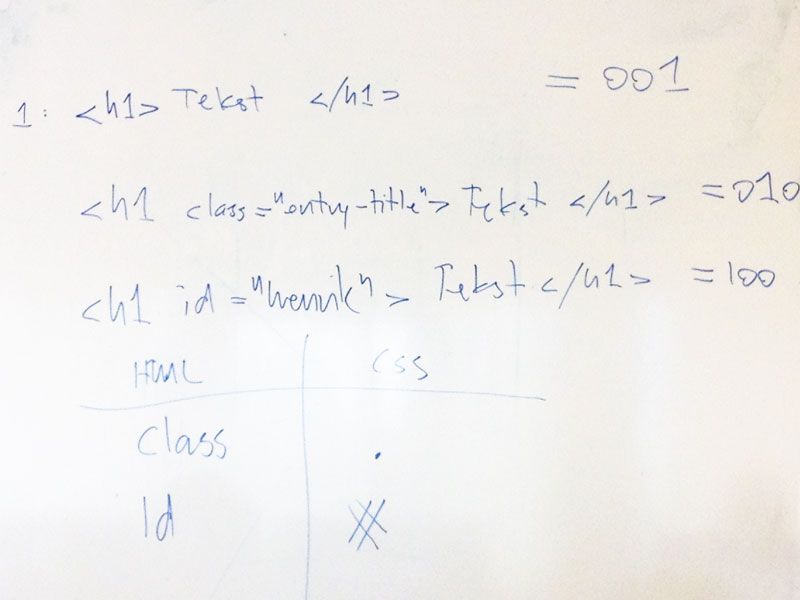 1: <h1> Tekst </h1> = 001
<h1 class="entry-title"> Tekst </h1> = 010
<h1 id="henrik"> Tekst </h1> = 100
HTML CSS
class .
Id #